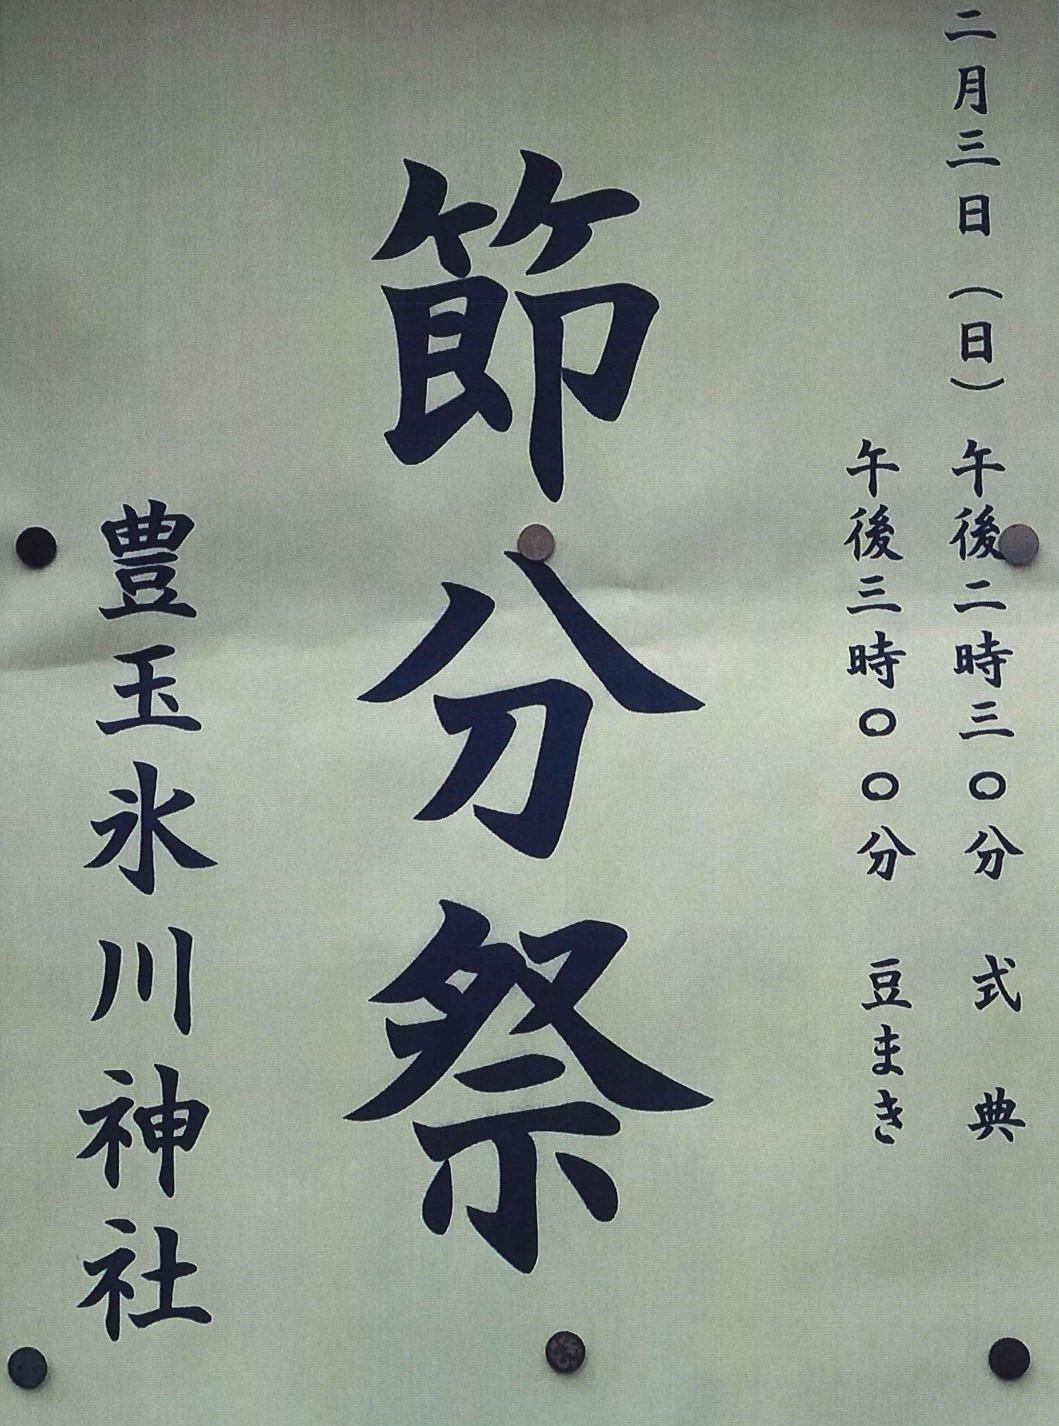 二月三日（日）　午後二時三〇分　式　典
午後三時〇〇分　豆まき
節分祭
豊玉氷川神社